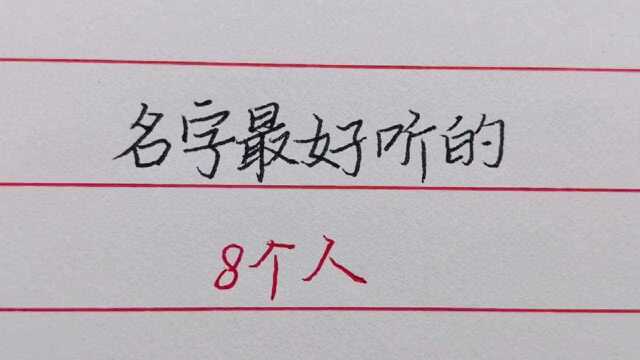 名字最好听的
8个人